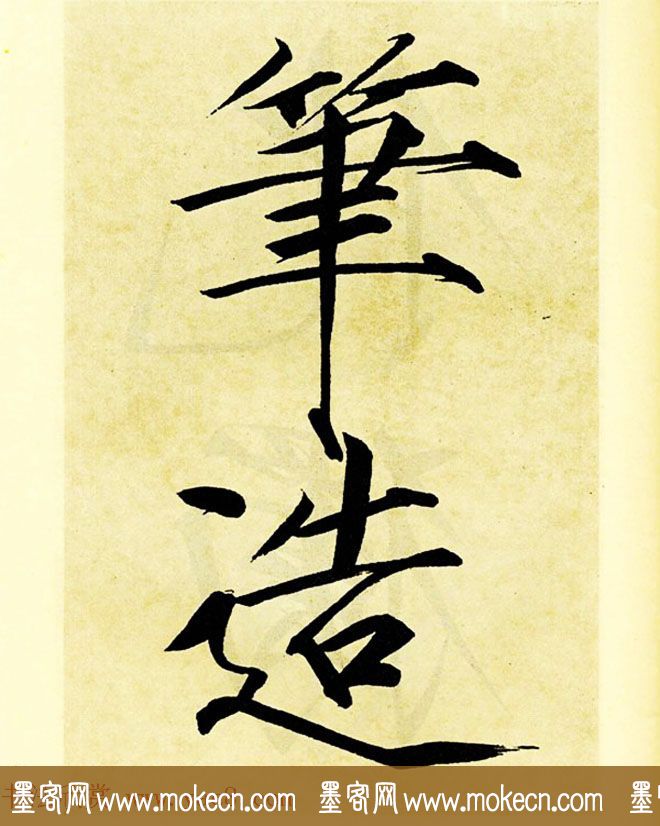 筆
造
墨客网 www.mokecn.com 墨客网 www.mokecn.com